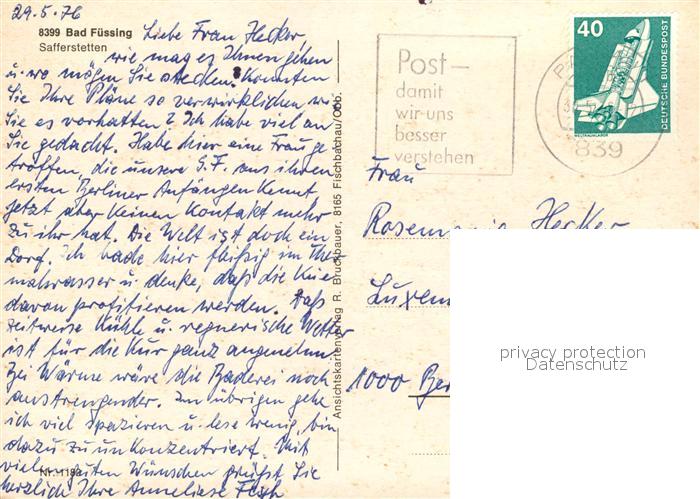 29.5.76
8399 Bad Füssing
Safferstetten
Liebe Frau Hecker,
wie mag es Ihnen gehen
u. wo mögen Sie stecken? Konnten
Sie Ihre Pläne so verwirklichen wie
Sie es vorhatten? Ich habe viel an
Sie gedacht. Habe hier eine Frau ge
troffen, die unsere G.F. aus ihren
ersten Berliner Anfängen kennt
jetzt aber keinen Kontakt mehr
zu ihr hat. Die Welt ist doch ein
Dorf. Ich bade hier fleißig im Ther
malwasser u. denke, daß die Knie
davon profitieren werden. Daß
zeitweise Kühle u. regnerische Wetter
ist für die Kur ganz angenehm.
Bei Wärme wäre die Baderei noch
anstrengender. Im übrigen gehe
ich viel spazieren u. lese wenig, bin
dazu zu unkonzentriert. Mit
vielen guten Wünschen grüßt Sie
herzlich Ihre Anneliese
Nr. 1188
Ansichtskartenverlag R. Bruckbauer, 8165 Fischbachau/Obb.
Post–
damit
wir uns
besser
verstehen
839
40
DEUTSCHE BUNDESPOST
WELTRAUMLABOR
Frau
Rosemarie Hecker
Luxem
1000 Ber
privacy protection
Datenschutz